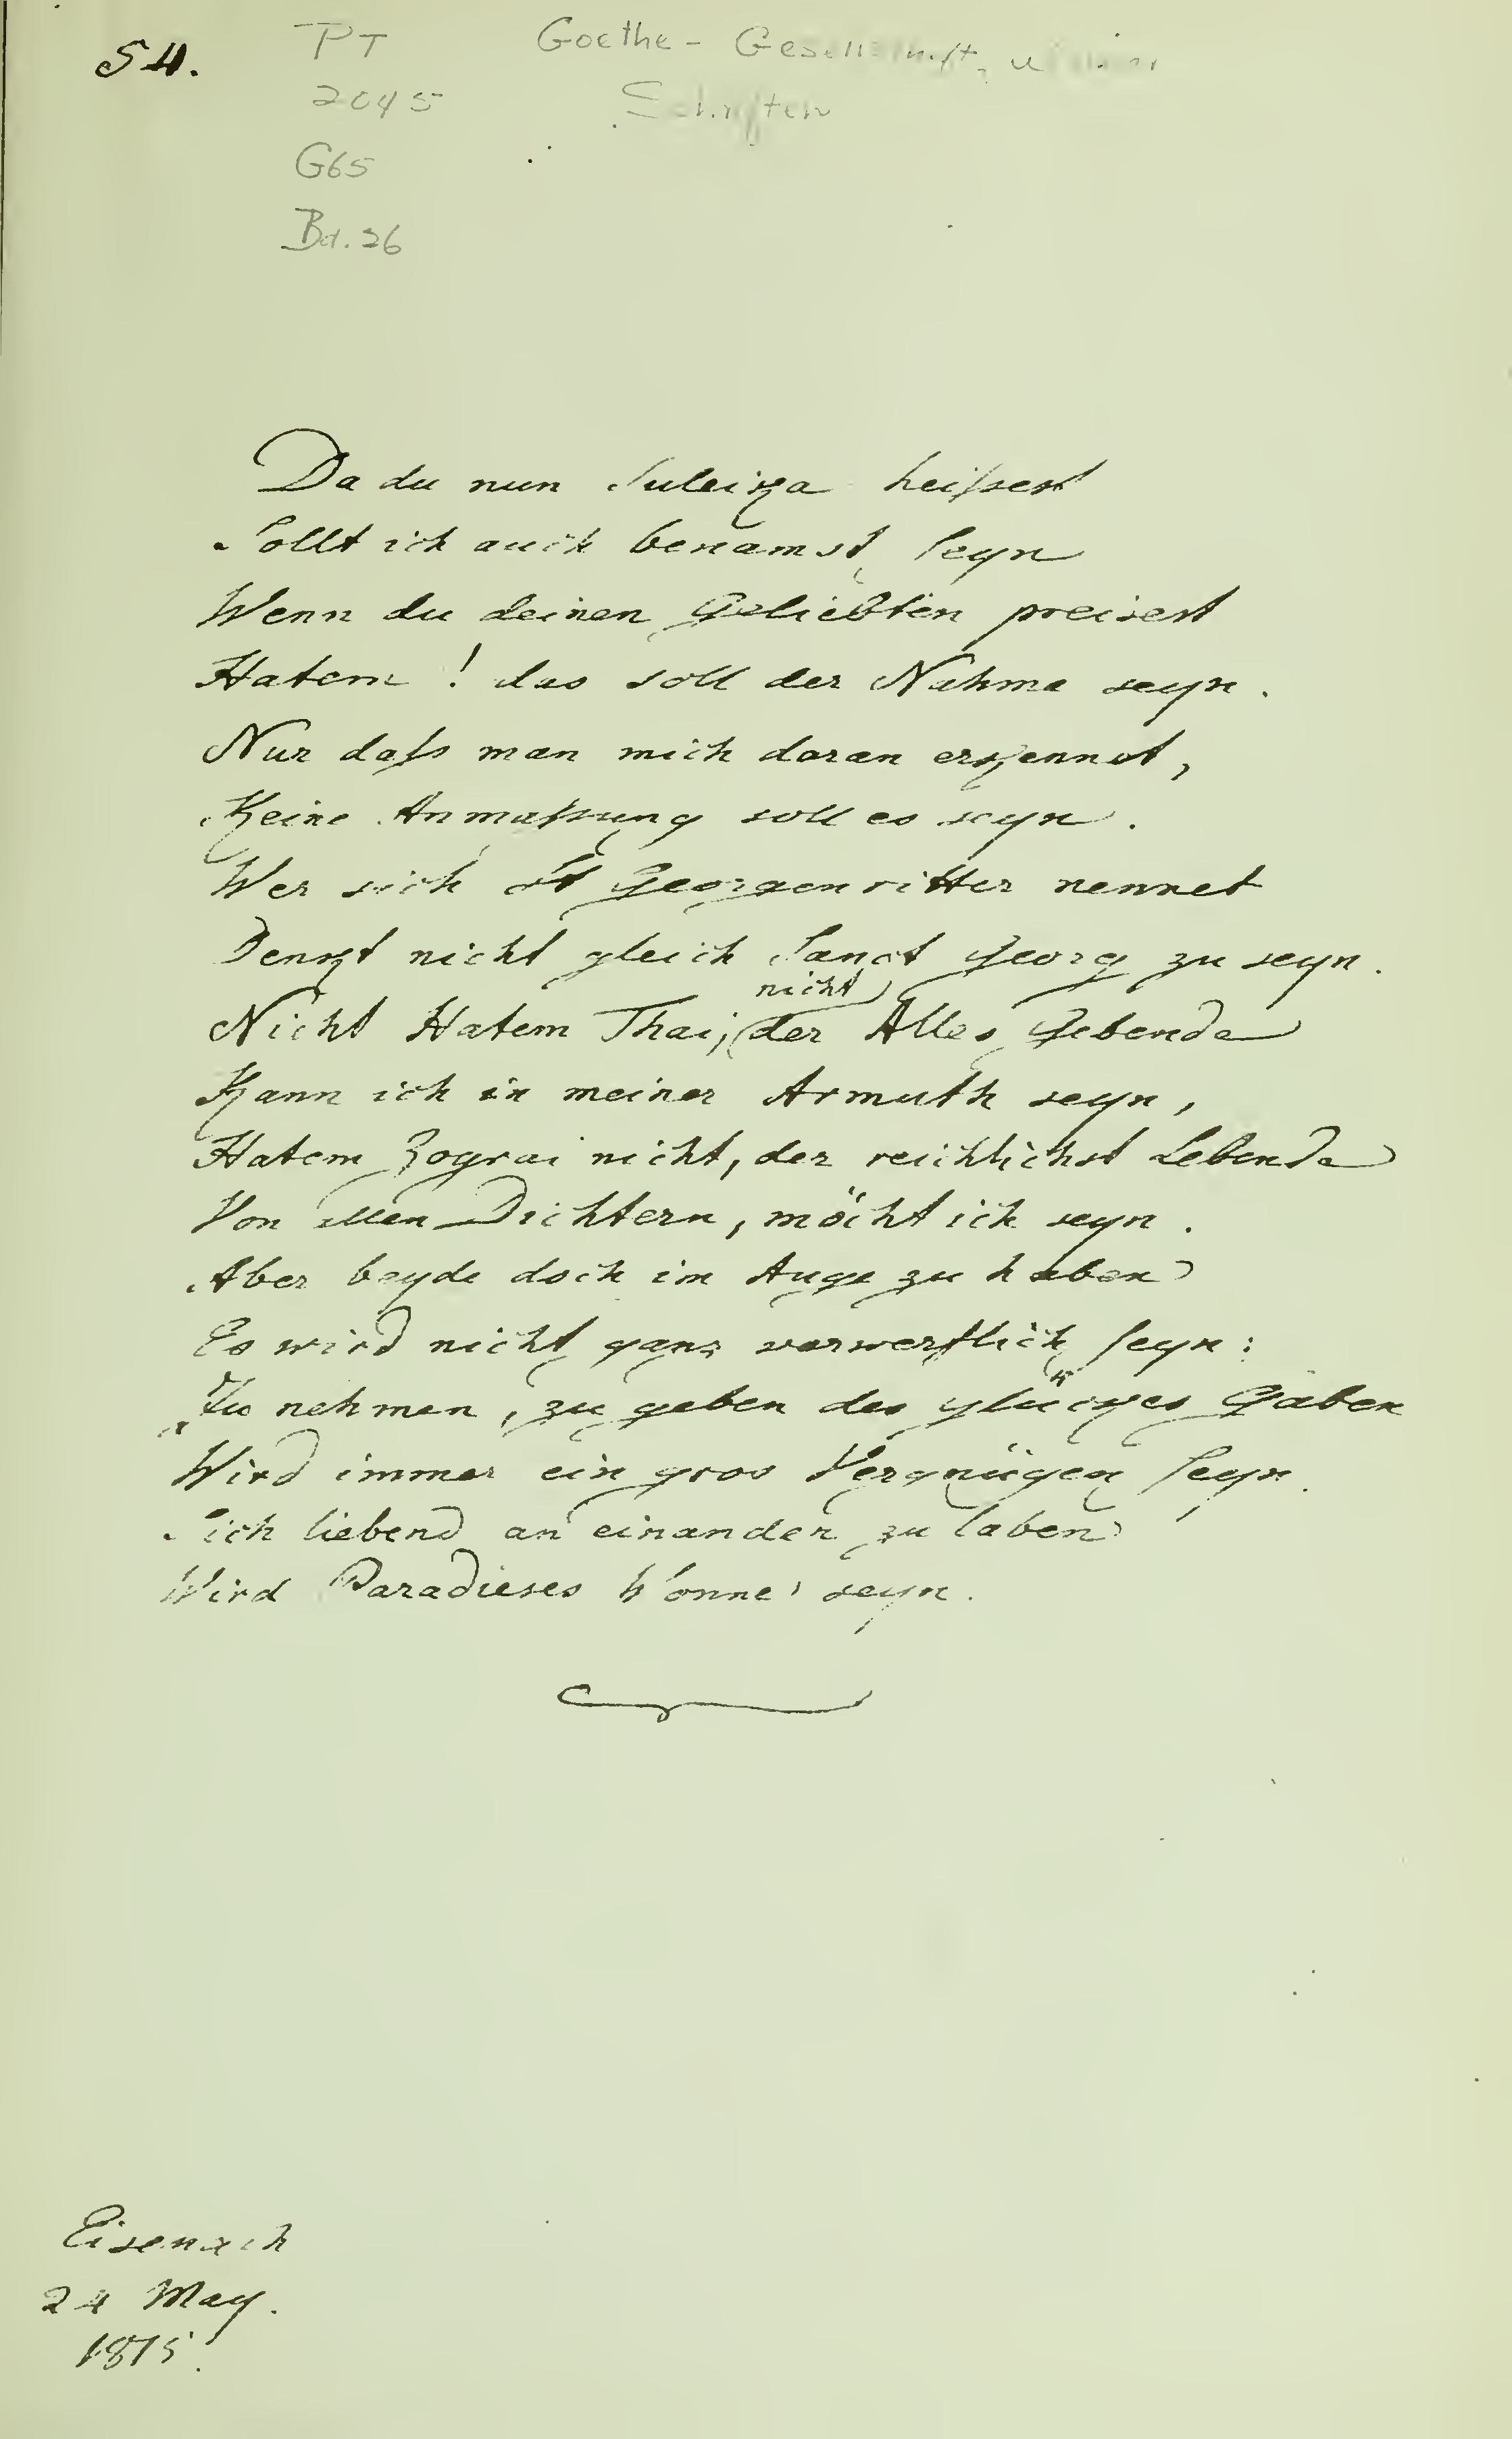 54.
PT
2045
G65
Bd. 26
Goethe-Gesellschaft,
Schriften
Da du nun Suleika heißest
Sollt ich auch benamst seyn
Wenn du deinen Geliebten preisest
Hatem! das soll der Nahme seyn.
Nur daß man mich daran erkennet,
Keine Anmaßung soll es seyn.
Wer sich St Georgenritter nennet
Denkt nicht gleich Sanct Georg zu seyn.
nicht
Nicht Hatem Thai, der Alles Gebende
Kann ich in meiner Armuth seyn,
Hatem Zograi nicht, der reichlichst Lebende
Von allen Dichtern, möcht ich seyn.
Aber beyde doch im Auge zu haben
Es wird nicht ganz verwerflich seyn:
Zu nehmen, zu geben des glückes Gaben
Wird immer ein gros Vergnügen seyn.
Sich liebend an einander zu laben
Wird Paradieses Wonne seyn.
Eisenach
24 May.
1815.